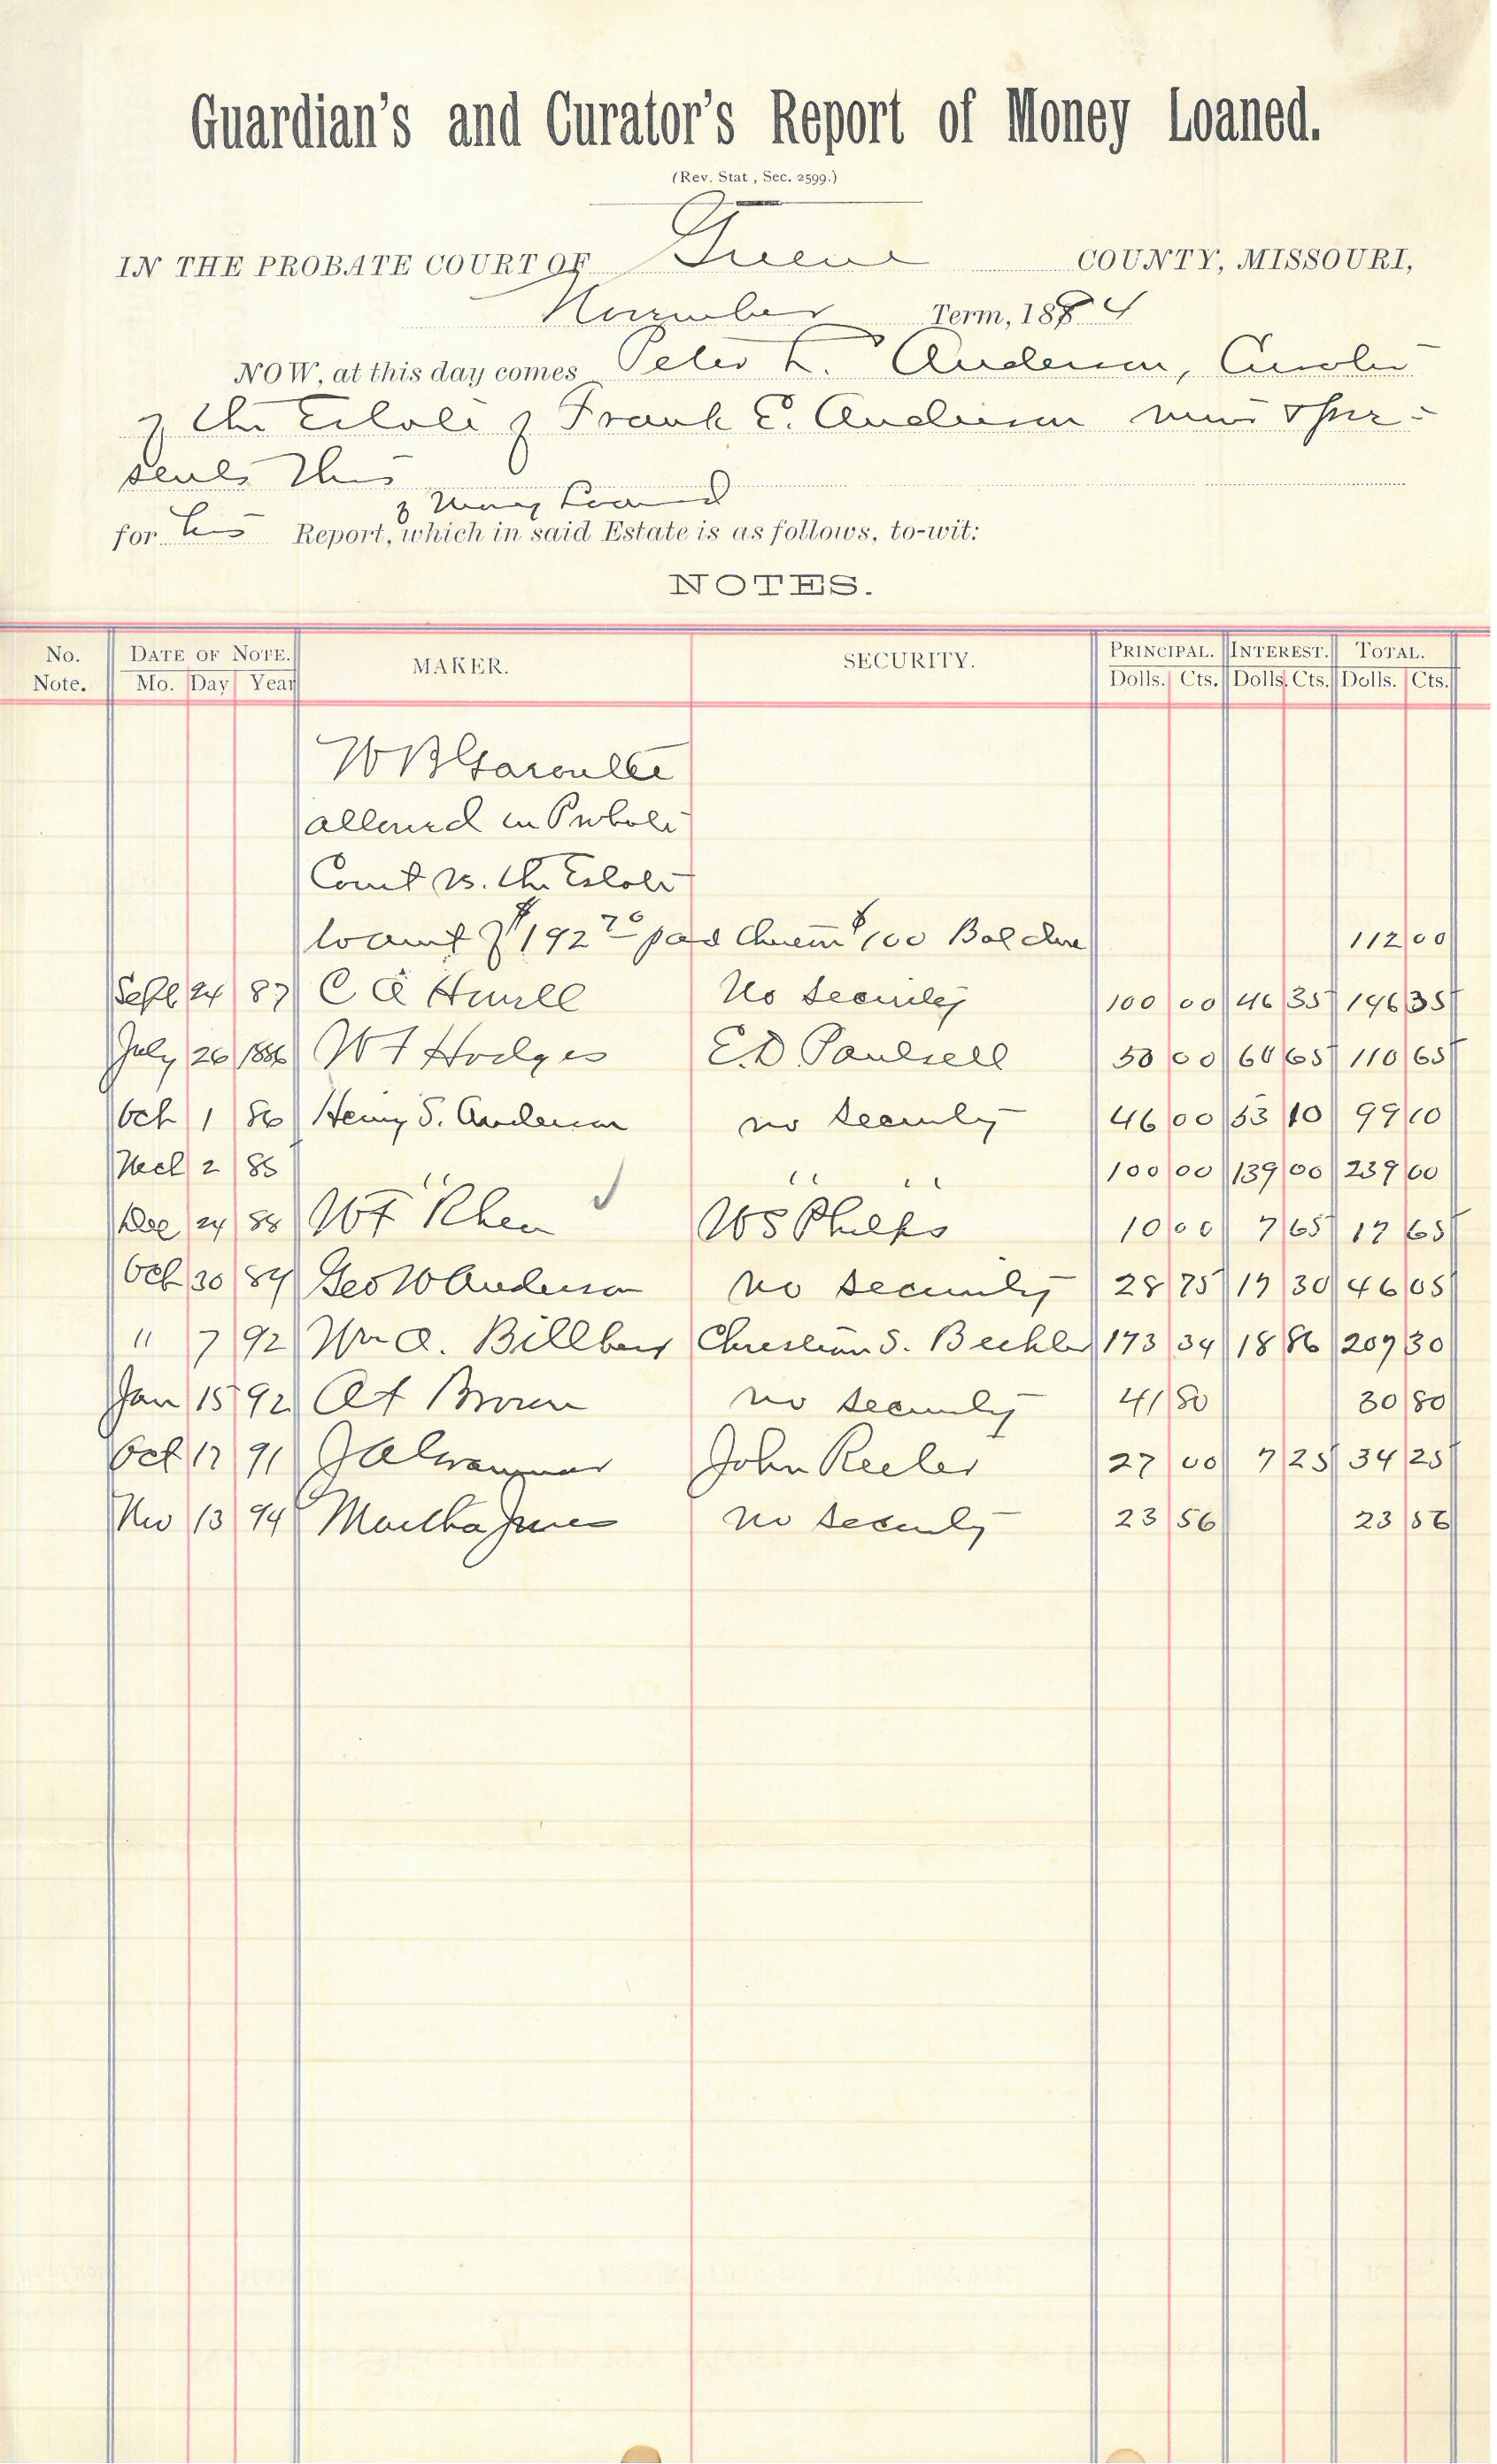 Guardian's and Curator's Report of Money Loaned.
(Rev. Stat, Sec. 2599.)
IN THE PROBATE COURT OF Greene COUNTY, MISSOURI,
November Term, 1894
NOW, at this day comes Peter L. Anderson, Curator
of the Estate of Frank E. Anderson minor & pre-
sents this
of Money Loaned
for his Report, which in said Estate is as follows, to-wit:
NOTES.
No. Note. DATE OF NOTE. Mo. Day Year MAKER. SECURITY. PRINCIPAL. Dolls. Cts. INTEREST. Dolls. Cts. TOTAL. Dolls. Cts.
W B Garoutte
allowed in Probate
Court vs. the Estate
to amt of $192 70 paid $100 Bal due 112 00
Sept 24 87 C A Howell No security 100 00 46 35 146 35
July 26 1886 W F Hodges E.D. Paulsell 50 00 60 65 110 65
Oct 1 86 Henry S. Anderson no security 46 00 53 10 99 10
Mch 2 85 " " " 100 00 139 00 239 00
Dec 24 88 W F Rhea W S Phelps 10 00 7 65 17 65
Oct 30 89 Geo W Anderson no security 28 75 17 30 46 05
" 7 92 Wm A. Billbery Christian S. Bechler 173 34 18 86 207 30
Jan 15 92 A F Brown no security 41 80 30 80
Oct 17 91 J A John Keeler 27 00 7 25 34 25
Nov 13 94 Martha Jones no security 23 56 23 56